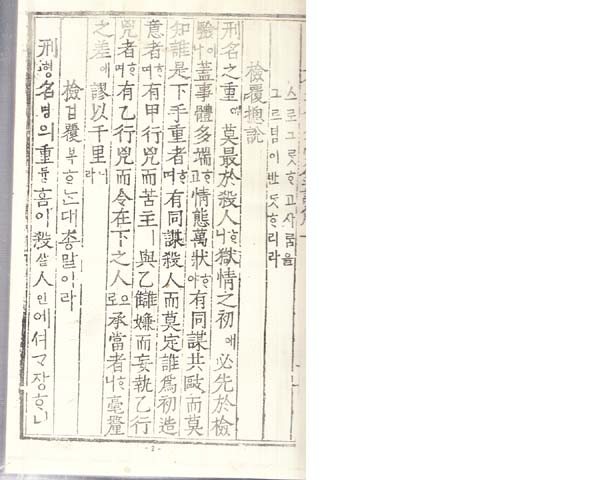 스로그릇ᄒᆞ고사ᄅᆞᆷ을
그르팀이반ᄃᆞᆺᄒᆞ리라
檢覆揔說
刑名之重애莫最於殺人ᄒᆞ니獄情之初애必先於檢
驗이니蓋事體多端ᄒᆞ고情態萬狀ᄒᆞ야有同謀共毆而莫
知誰是下手重者ᄒᆞ며有同謀殺人而莫定誰爲初造
意者ᄒᆞ며有甲行兇而苦主ㅣ與乙讎嫌而妄執乙行
兇者ᄒᆞ며有乙行兇而令在下之人으로承當者ᄒᆞ니毫釐
之差에謬以千里니라
檢검覆복ᄒᆞᄂᆞᆫ대총말이라
刑형名명의重듕홈이殺살人인에셔ᄀᆞ장ᄒᆞ니